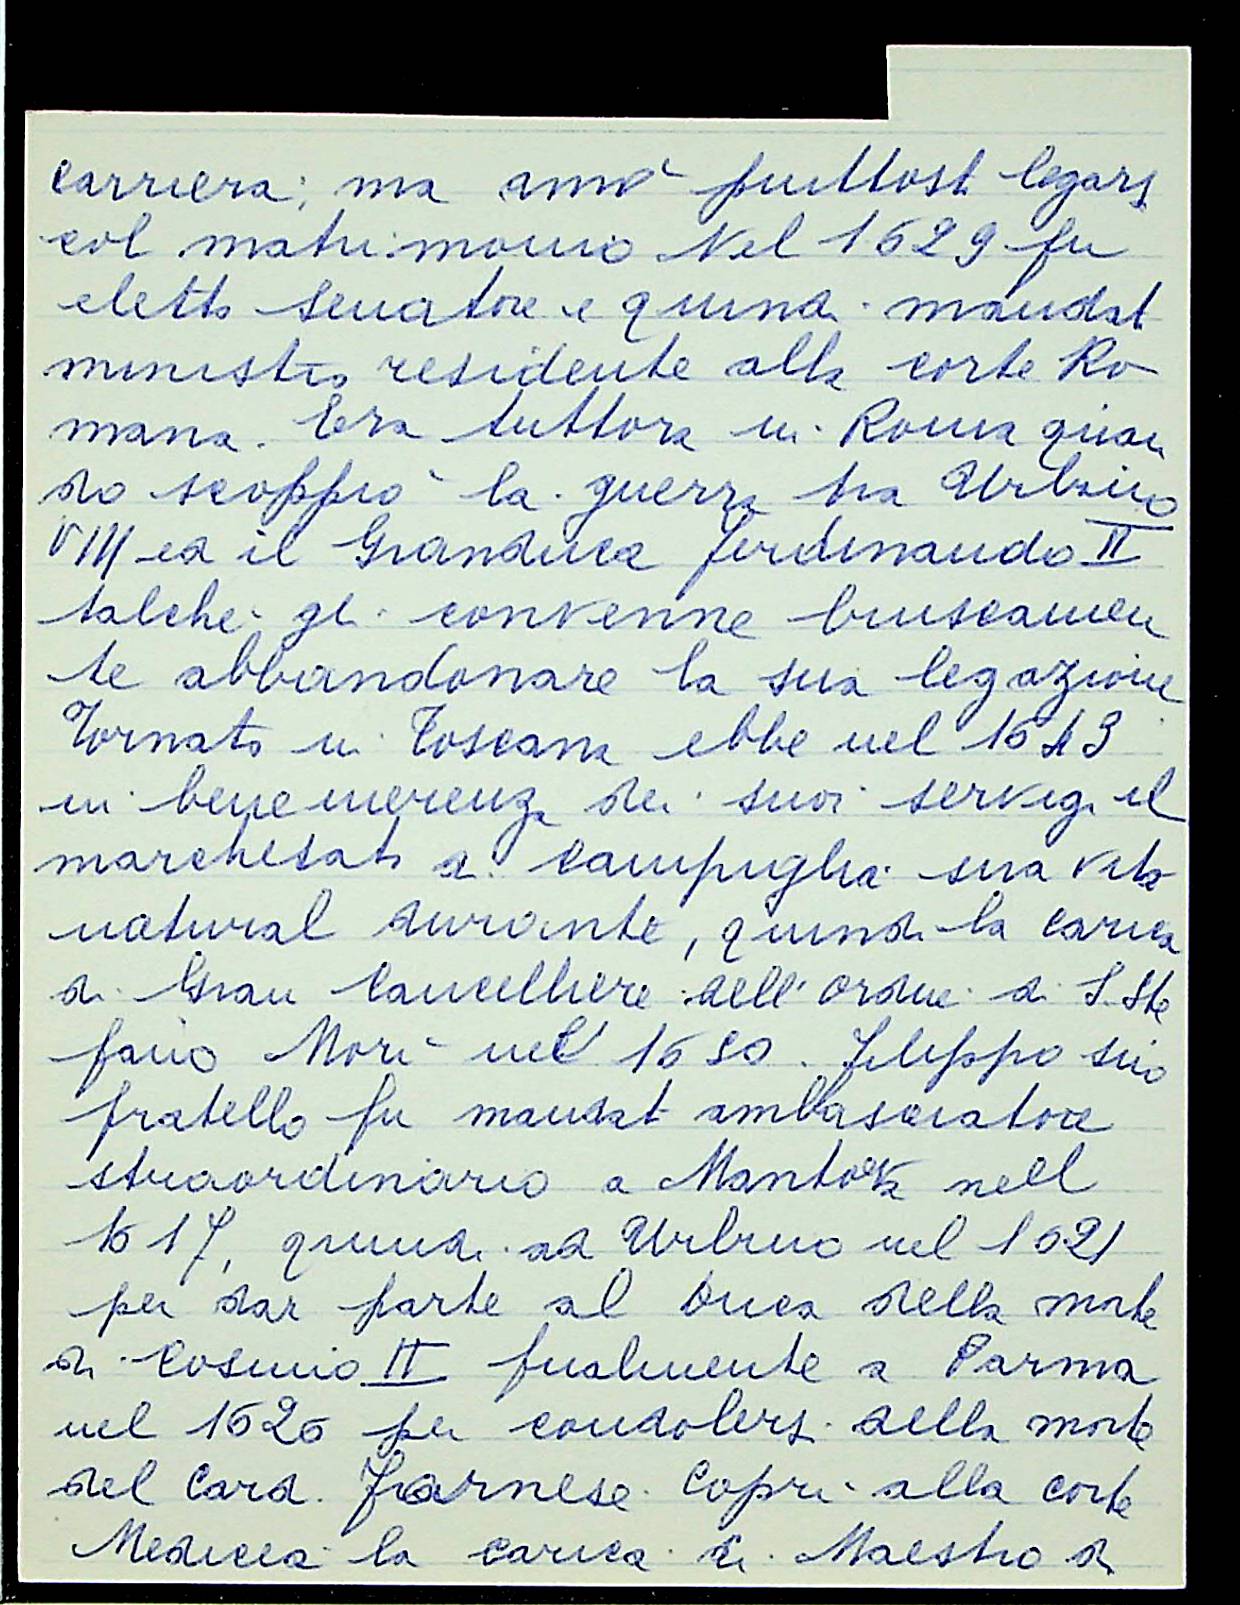 carriera; ma amò piuttosto legarsi
col matrimonio Nel 1629 fu
eletto senatore e quindi mandato
ministro residente alla corte Ro
mana. Era tuttora in Roma quan
do scoppiò la guerra tra Urbano
VIII ed il Granduca Ferdinando II
talché gli convenne bruscamen
te abbandonare la sua legazione
Tornato in Toscana ebbe nel 1643
in benemerenza dei suoi servigi il
marchesato di Campiglia sua vita
natural durante, quindi la carica
di Gran Cancelliere dell'ordine di S. Ste
fano Morì nel 1650. Filippo suo
fratello fu mandato ambasciatore
straordinario a Mantova nell
1617, quindi ad Urbino nel 1621
per dar parte al Duca della morte
di Cosimo II finalmente a Parma
nel 1626 per condolersi della morte
del Card. Farnese. Coprì alla corte
Medicea la carica di Maestro di